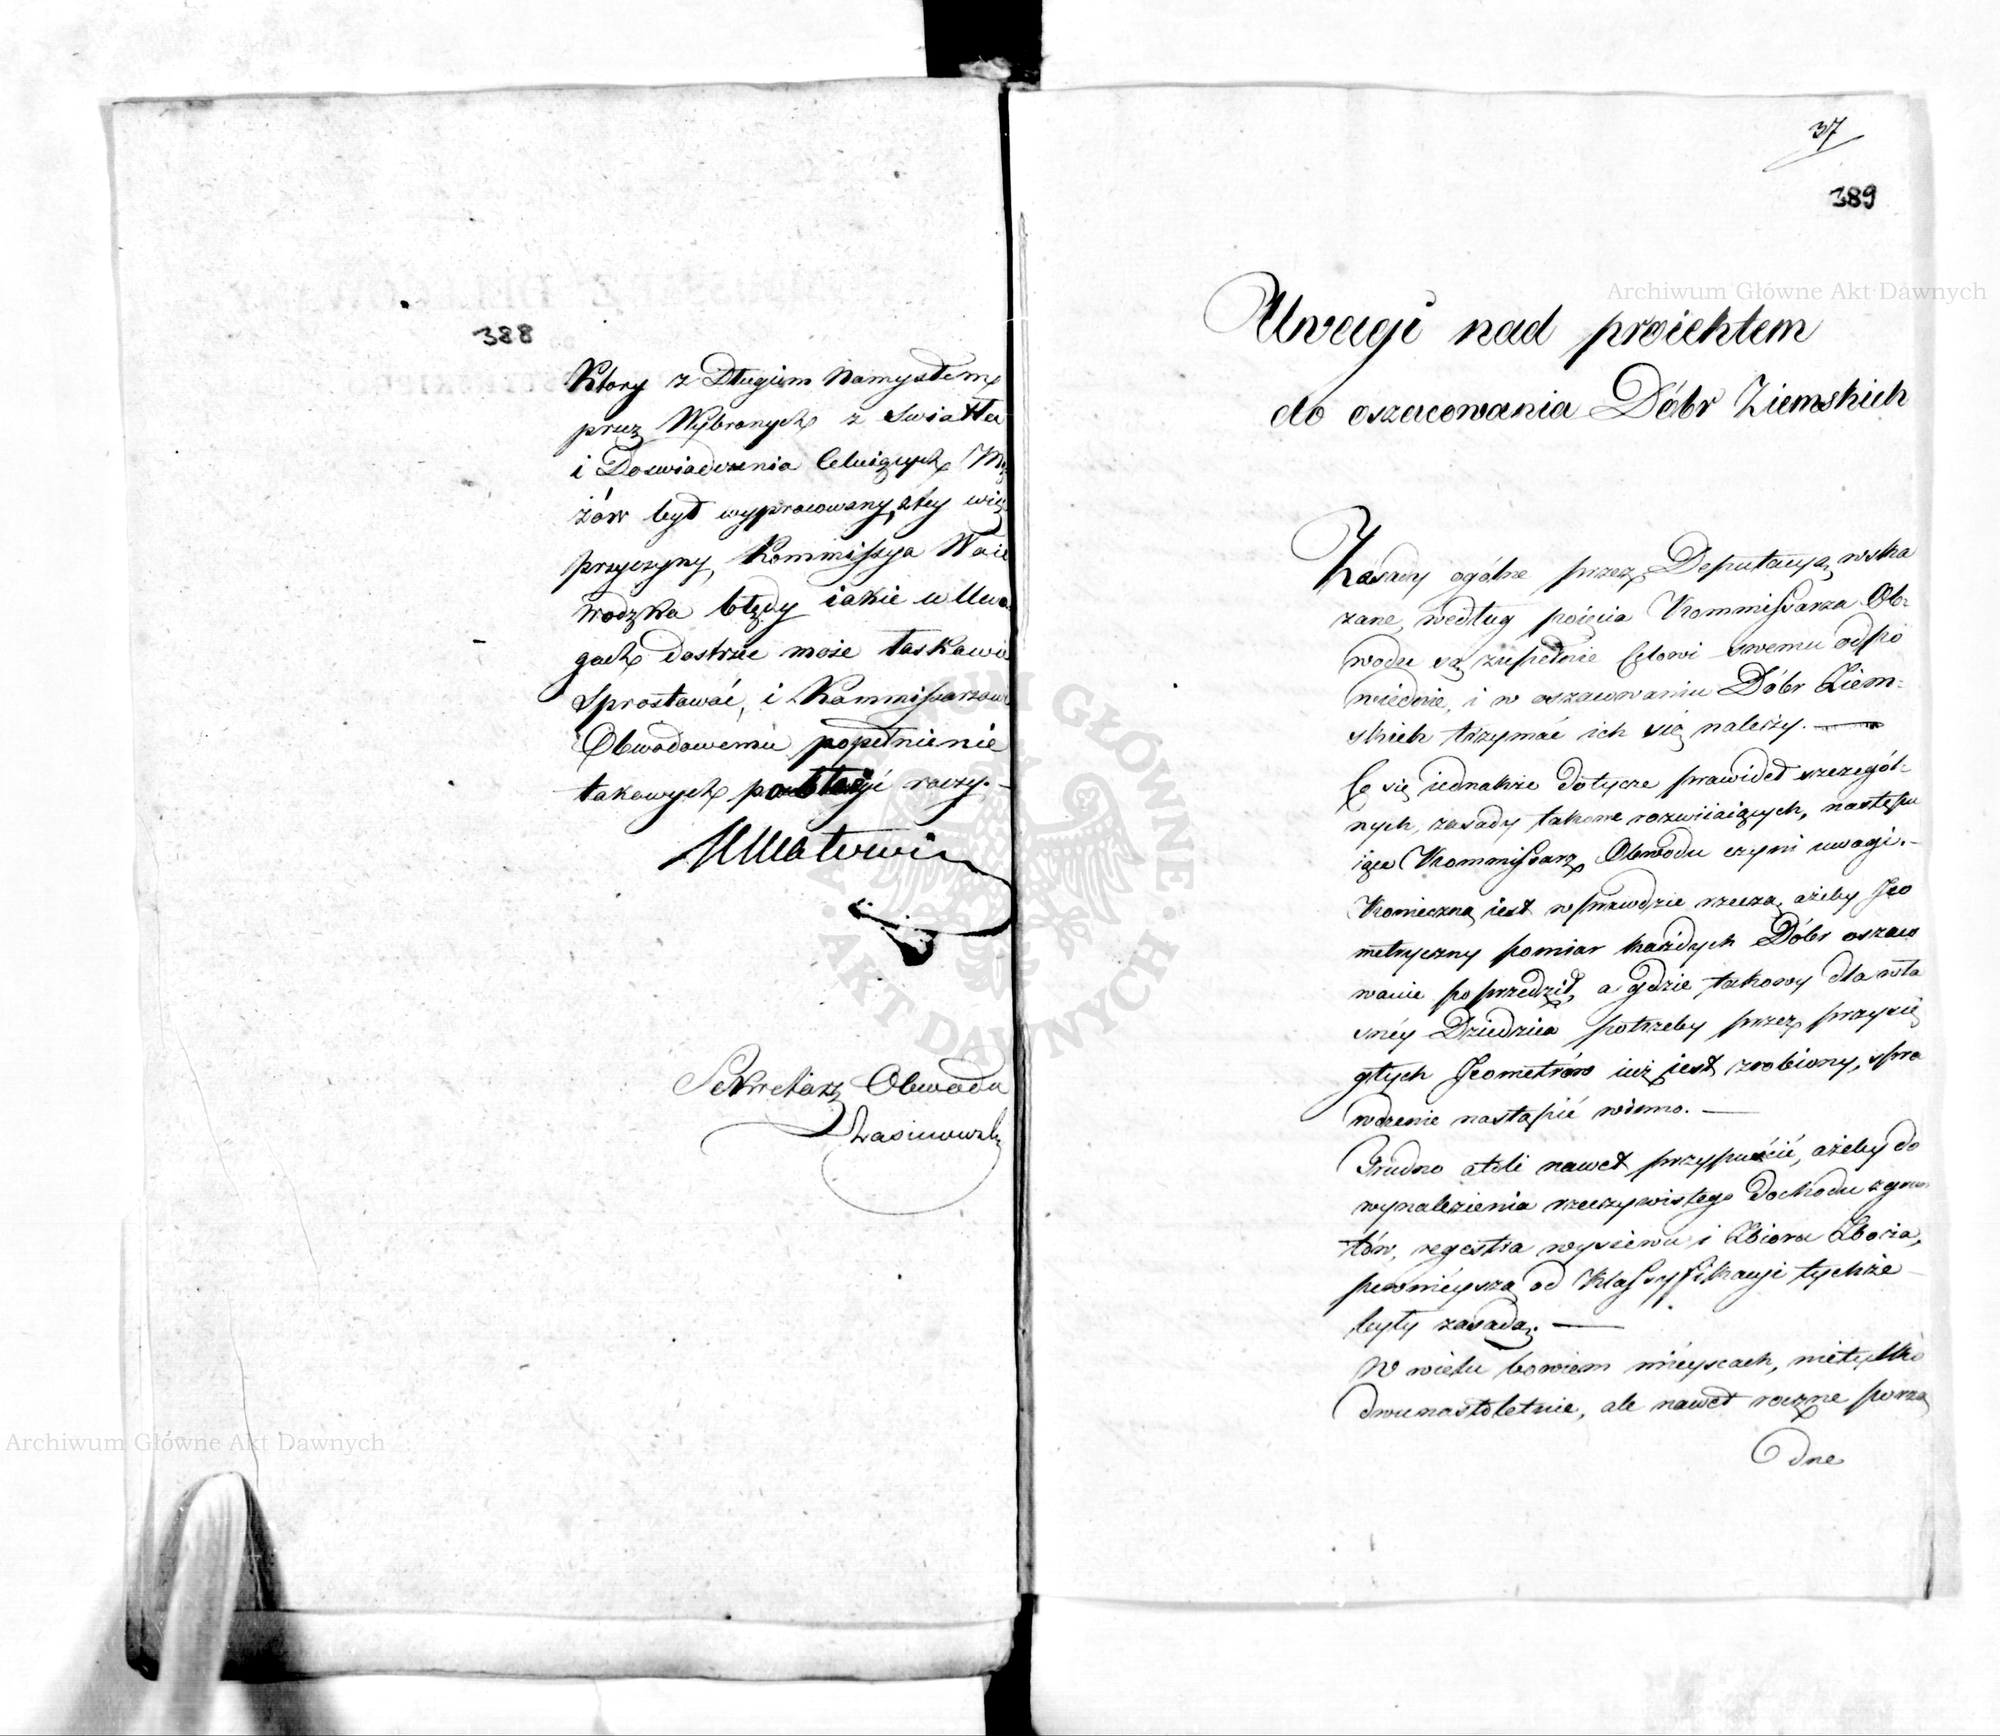 388
Ktory z Długim Namysłem
przez Wybranych z Swiatła
i Doswiadczenia Celuiących Mę
żów był wypracowany, z tey wię
przyczyny, Kommissya Woie
wodzka błędy iakie w Uwa
gach dostrzec może łaskawie
Sprostować, i Kommissarzowi
Obwodowemu popełnienie
takowych pobłażyć raczy.
Sekretarz Obwodu
37
389
Uwagi nad proiektem
do oszacowania Dóbr Ziemskich
Zasady ogólne przez Deputacyą wska
zane, według poięcia Kommissarza Ob-
wodu są zupełnie Celowi swemu odpo
wiednie, i w oszacowaniu Dóbr Ziem=
skich trzymać ich się należy. —
Co się iednakże dotycze prawideł szczegól-
nych, zasady takowe rozwiiaiących, nastepu
iące Kommissarz Obwodu czyni uwagi.-
Konieczną iest wprawdzie rzeczą, ażeby Jeo
metryczny pomiar każdych Dóbr oszaco
wanie poprzedził, a gdzie takowy dla wła
snéy Dziedzica potrzeby przez przysię
głych Jeometrów iuż iest zrobiony, spra
wdzenie nastąpić winno. —
Trudno atoli nawet przypuścić, ażeby do
wynalezienia rzeczywistego dochodu z grun
tów, regestra wysiewu i Zbioru Zboża,
pewnieyszą od Klassyfikacyi tychże
były zasadą. —
W wielu bowiem mieyscach, nietylko
dwunastoletnie, ale nawet roczne porzą
dne
Archiwum Główne Akt Dawnych
Archiwum Główne Akt Dawnych
ARCHIWUM GŁÓWNE · AKT DAWNYCH ·